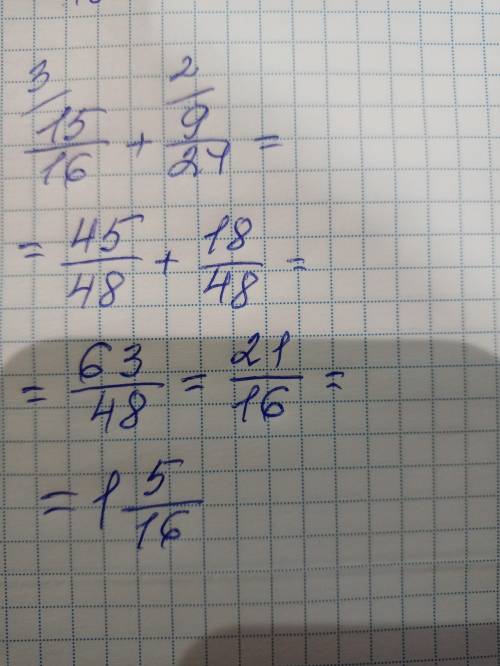 3/ 15/16 + 2/ 9/24 =
= 45/48 + 18/48 =
= 63/48 = 21/16 =
= 1 5/16